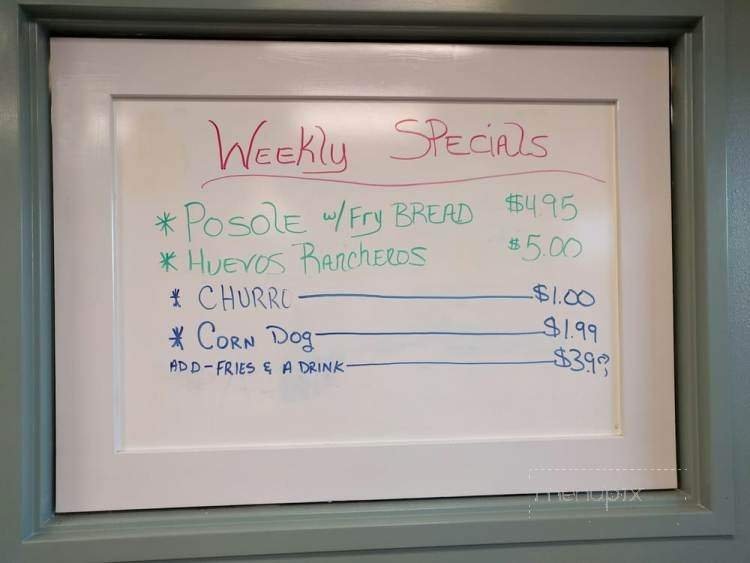 Weekly Specials
* Posole w/ Fry Bread $4.95
* Huevos Rancheros $5.00
* Churro $1.00
* Corn Dog $1.99
Add-Fries & A Drink
menupix